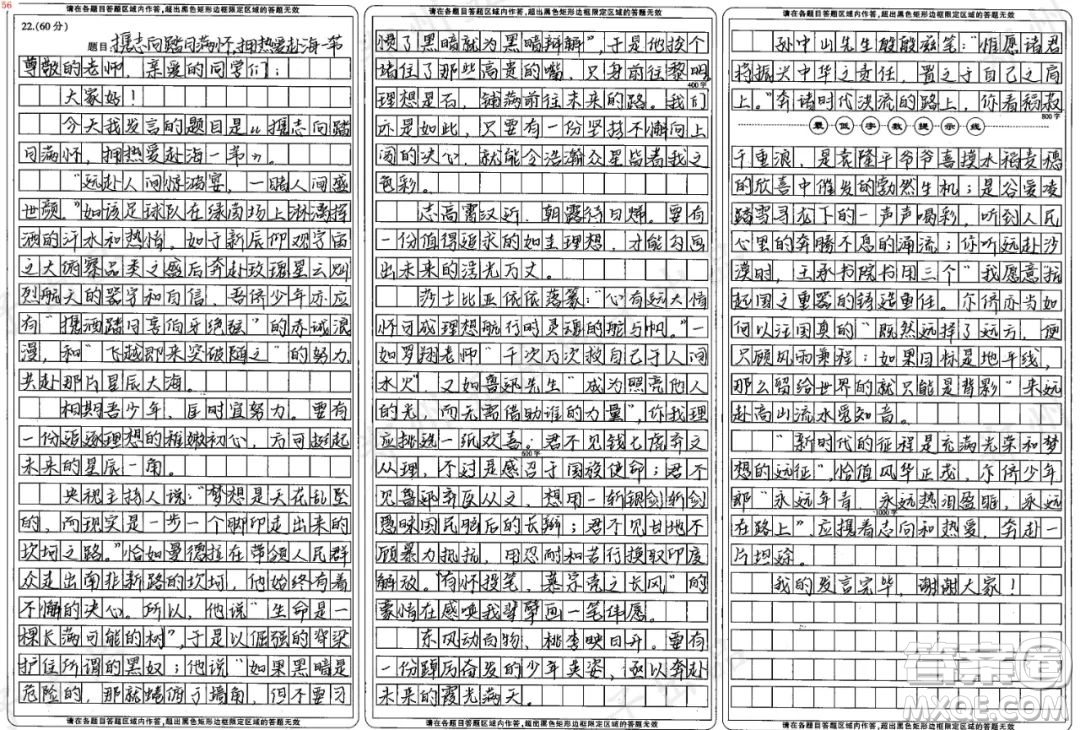 56
请在各题目答题区域内作答,超出黑色矩形边框限定区域的答题无效
22.(60分)
题目:携志向踏月满怀,拥热爱赴海一苇
尊敬的老师,亲爱的同学们:
大家好!
今天我发言的题目是《携志向踏
月满怀,拥热爱赴海一苇》。
“远赴人间惊鸿宴,一睹人间盛
世颜。”如该足球队在绿茵场上淋漓挥
洒的汗水和热情,如于新辰仰观宇宙
之大俯察品类之盛后奔赴玫瑰星云灿
烈航天的器宇和自信,吾侪少年亦应
有“携酒踏月喜伯牙绝弦”的赤诚浪
漫,和“飞越即来突破随之”的努力
共赴那片星辰大海。
相期吾少年,匡时宜努力。要有
一份追逐理想的稚嫩初心,方可挺起
未来的星辰一角。
央视主持人说:“梦想是天花乱坠
的,而现实是一步一个脚印走出来的
坎坷之路。”恰如曼德拉在带领人民群
众走出南非新路的坎坷,他始终有着
不懈的决心。所以,他说“生命是一
棵长满可能的树”,于是以倔强的脊梁
护住所谓的黑奴;他说“如果黑暗是
危险的,那就蜷俯于墙角,但不要习
请在各题目答题区域内作答,超出黑色矩形边框限定区域的答题无效
请在各题目答题区域内作答,超出黑色矩形边框限定区域的答题无效
惯了黑暗就为黑暗辩解”,于是他挨个
堵住了那些高贵的嘴,只身前往黎明
400字
理想是石,铺满前往未来的路。我们
亦是如此,只要有一份坚持不懈向上
阔的决心,就能令浩瀚众星皆者我之
色彩。
志高霄汉近,朝露待日晞。要有
一份值得追求的如圭理想,才能勾画
出未来的浩光万丈。
莎士比亚依依落纂:“心有远大情
怀可成理想航行时灵魂的舵与帆。”一
如罗翔老师“千次万次救自己于人间
水火”,又如鲁迅先生“成为照亮他人
的光,而无需借助谁的力量”,你我理
应挑选一纸欢喜:君不见钱七虎弃文
600字
从理,不过是感召于国族使命;君不
见鲁迅弃医从文,想用一斩银剑斩剑
愚昧国民脑后的长辫;君不见甘地不
顾暴力抵抗,用忍耐和苦行换取印度
解放。“有怀投笔,慕宗悫之长风”的
豪情在感唤我擘擘画一笔伟愿。
东风动百物,桃李映日开。要有
一份踔厉奋发的少年英姿,函以奔赴
未来的霞光满天。
请在各题目答题区域内作答,超出黑色矩形边框限定区域的答题无效
请在各题目答题区域内作答,超出黑色矩形边框限定区域的答题无效
孙中山先生殷殷兹笔:“惟愿诸君
将振兴中华之责任,置之于自己之肩
上。”奔诸时代洪流的路上,你看稷菽
800字
最低字数提示线
千重浪,是袁隆平爷爷喜摸水稻麦穗
的欣喜中催发的勃然生机;是谷爱凌
踏雪寻龙下的一声声喝彩,听到人民
心里的奔腾不息的涌流;你听远赴沙
漠时,王承书院书用三个“我愿意抗
起国之重器的铸造重任。尔侪亦当如
何以汪国真的“既然选择了远方,便
只顾风雨兼程;如果目标是地平线,
那么留给世界的就只能是背影”来远
赴高山流水觅知音。
“新时代的征程是充满光荣和梦
想的远征”,恰值风华正茂,尔侪少年
郎“永远年青,永远热泪盈眶,永远
1000字
在路上”,应携着志向和热爱,奔赴一
片坦途。
我的发言完毕,谢谢大家!
请在各题目答题区域内作答,超出黑色矩形边框限定区域的答题无效
答案圈
MXQE.COM